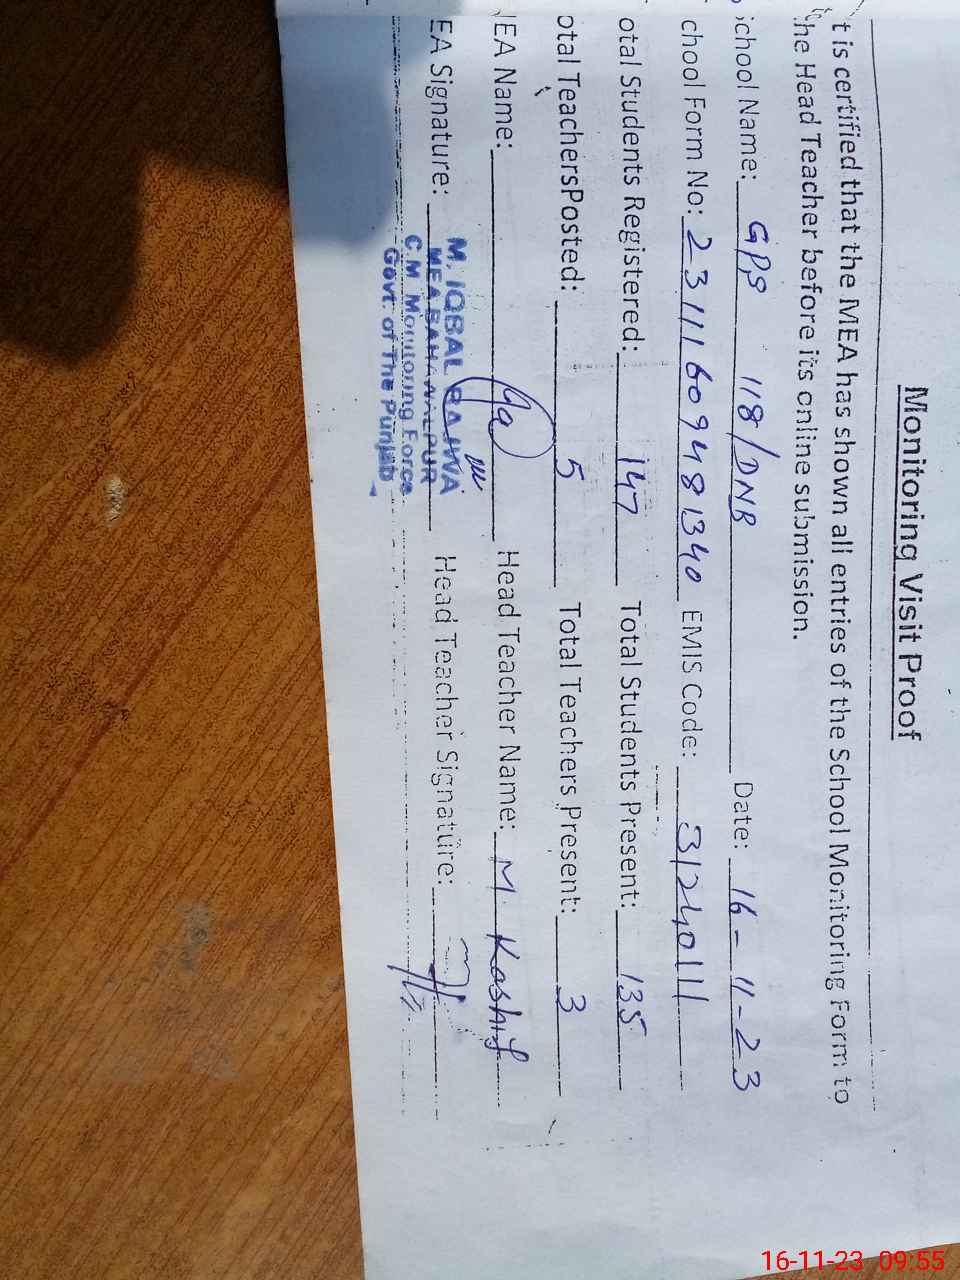 Monitoring Visit Proof
t is certified that the MEA has shown all entries of the School Monitoring Form to
the Head Teacher before its online submission.
School Name: GPS 118/DNB Date: 16-11-23
chool Form No: 2311160948 1340 EMIS Code: 31240111
otal Students Registered: 147 Total Students Present: 135
otal TeachersPosted: 5 Total Teachers Present: 3
EA Name: Head Teacher Name: M. Kashif
EA Signature: Head Teacher Signature:
M. IQBAL BAJWA
MEA BAHAWALPUR
C.M Monitoring Force
Govt. of The Punjab
16-11-23 09:55